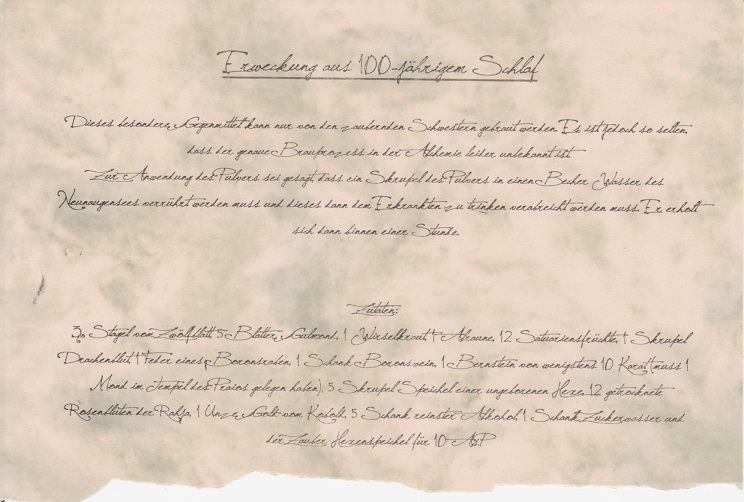 Erweckung aus 100-jährigem Schlaf
Dieses besondere Gegenmittel kann nur von den zaubernden Schwestern gebraut werden. Es ist jedoch so selten,
dass der genaue Brauprozess in der Alchemie leider unbekannt ist
Zur Anwendung des Pulvers sei gesagt dass ein Skrupel des Pulvers in einen Becher Wasser des
Neunaugensees verrührt werden muss und dieses dann dem Erkrankten zu trinken verabreicht werden muss. Er erholt
sich dann binnen einer Stunde.
Zutaten:
Stapel vom Zwölfblatt, 5 Blätter Gulmond, 1 Wirselkraut, 1 Alraune, 12 Satuariensfrüchte, 1 Skrupel
Drachenblut, 1 Feder eines Boronsraben, 1 Schank Boronwein, 1 Bernstein von wenigstens 10 Karat (muss 1
Mond im Tempel des Praios gelegen haben), 5 Skrupel Speichel einer ungeborenen Hexe, 12 getrocknete
Rosenblüten der Rahja, 1 Unze Gold vom Kobold, 5 Schank reinster Alkohol, 1 Schank Zuckerwasser und
der Zauber Hexenspeichel für 10 AsP